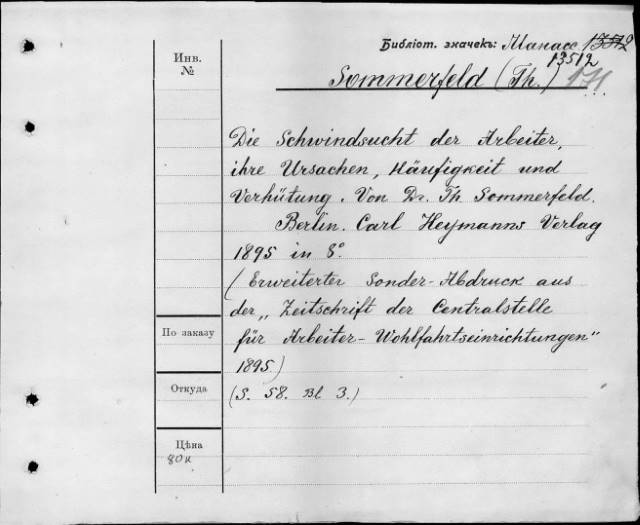 Библіот. значекъ: Манасс
13512
Инв.
№
Sommerfeld (Th.)
Die Schwindsucht der Arbeiter,
ihre Ursachen, Häufigkeit und
Verhütung. Von Dr. Th. Sommerfeld.
Berlin. Carl Heymanns Verlag
1895 in 8°.
(Erweiterter Sonder-Abdruck aus
der „Zeitschrift der Centralstelle
für Arbeiter-Wohlfahrtseinrichtungen"
1895)
(S. 58. Bl 3.)
По заказу
Откуда
Цѣна
80к